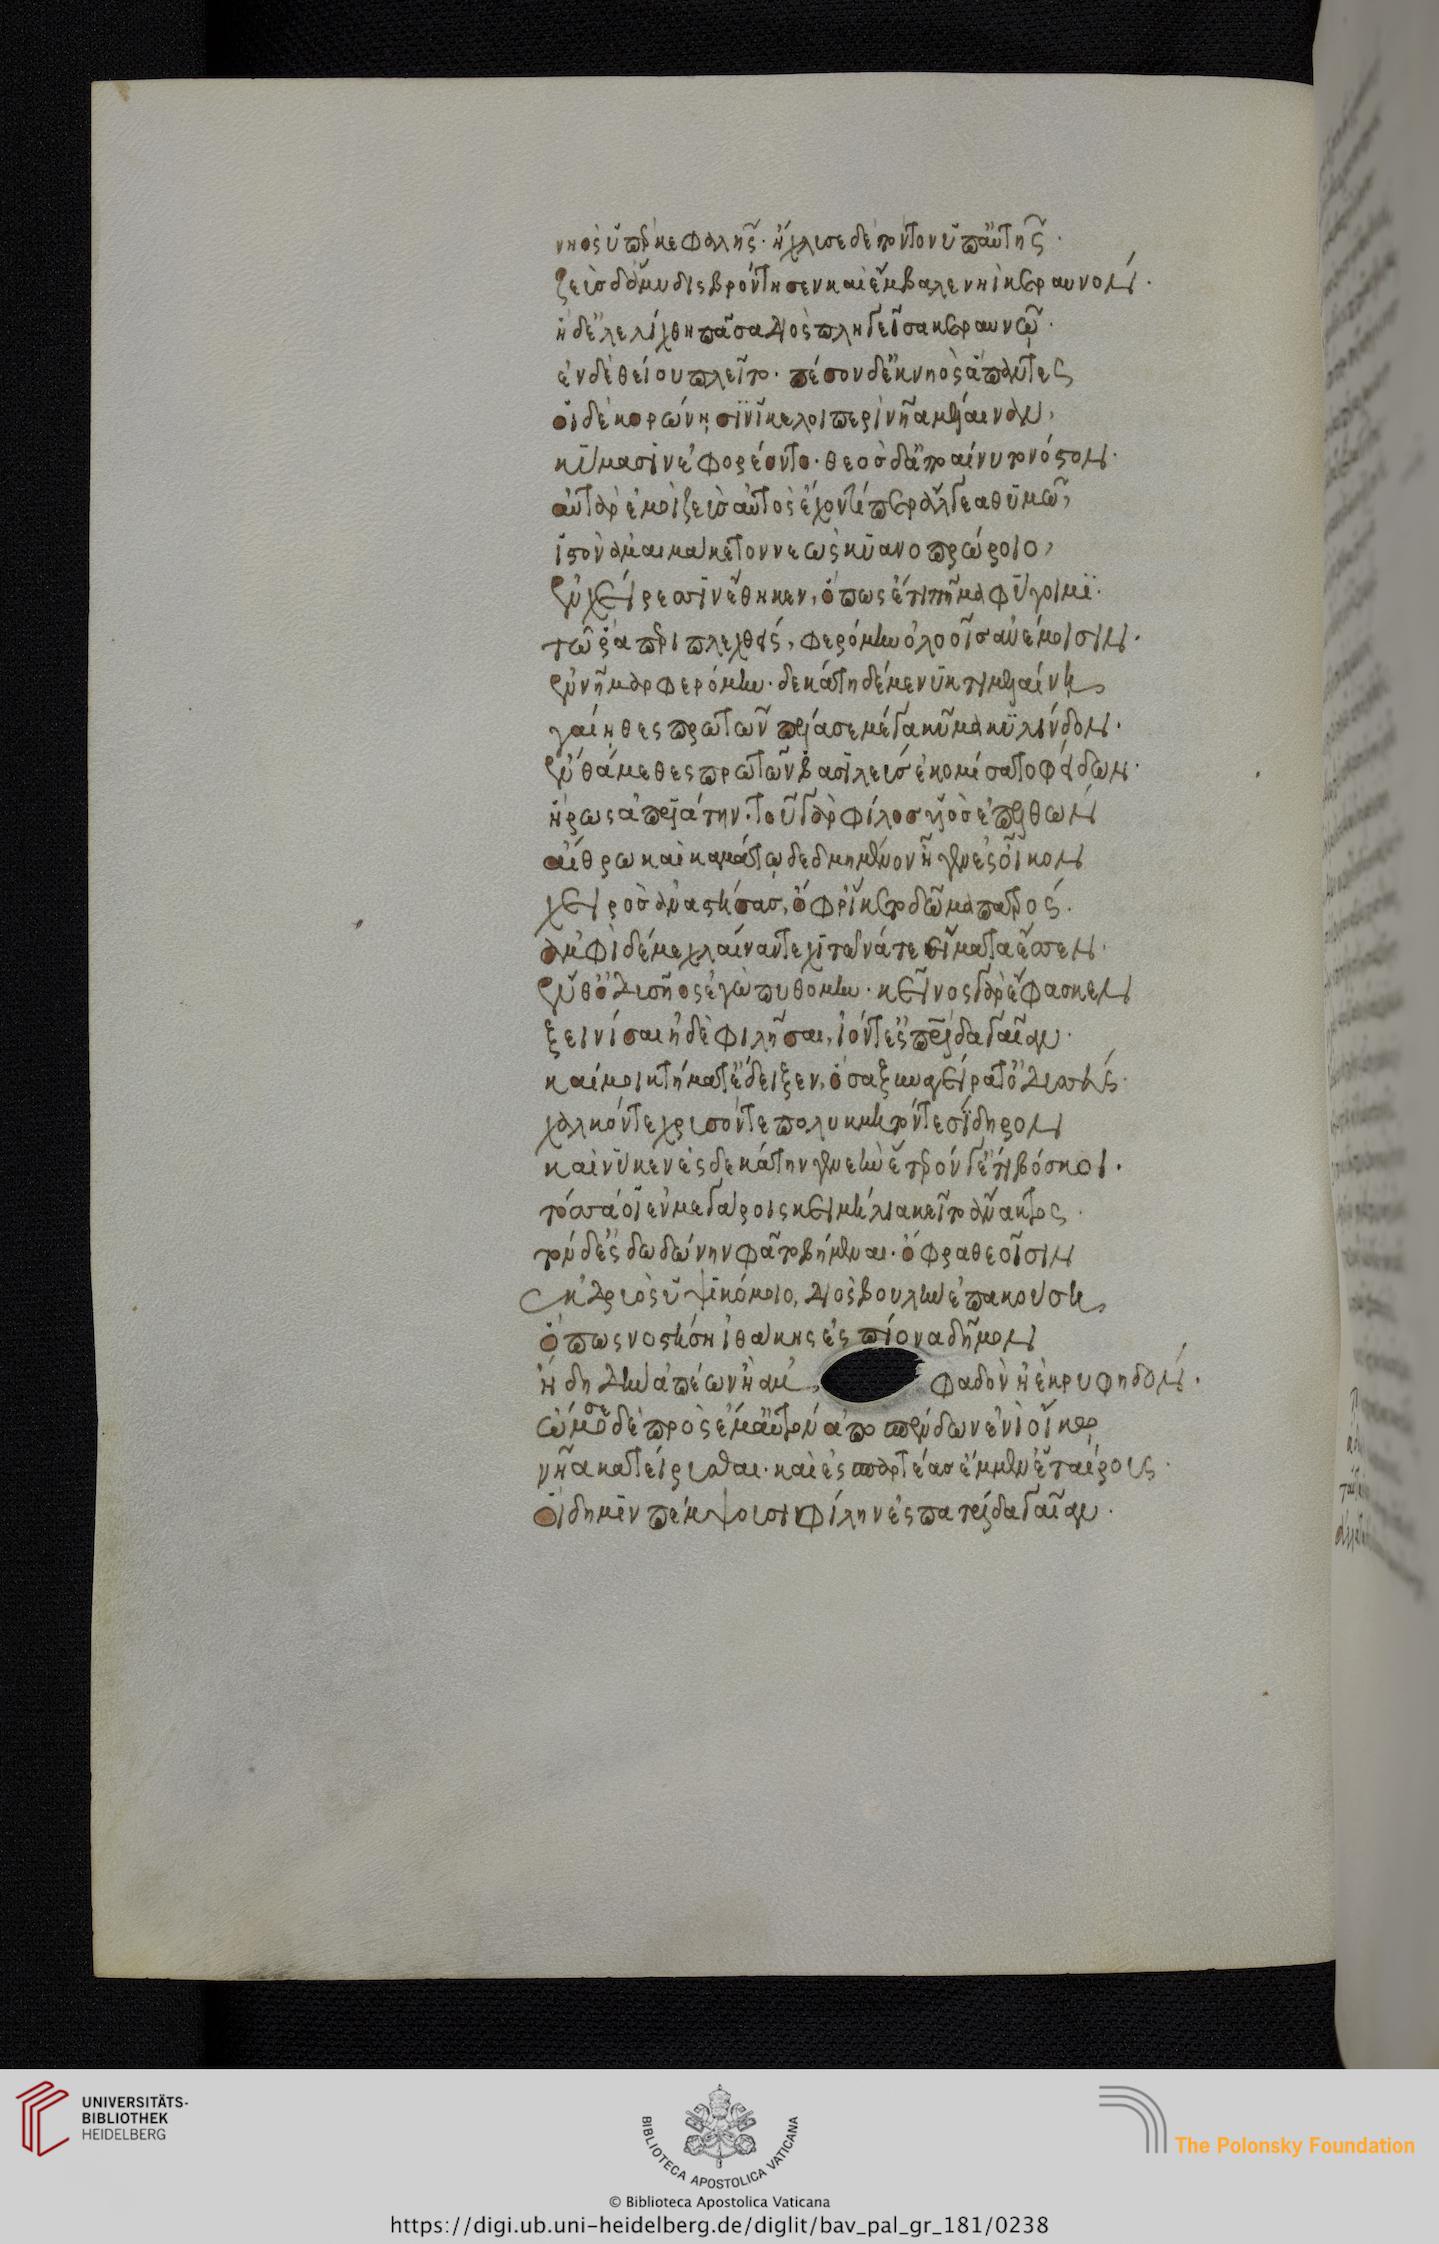 νηὸς ὑπὲρ κεφαλῆς· ἤχλυσε δὲ πόντον ὑπ' αὐτῆς·
ζεὺς δ' ἄμυδις βρόντησεν καὶ ἔμβαλε νηῒ κεραυνόν·
ἡ δ' ἐλελίχθη πᾶσα διὸς πληγεῖσα κεραυνῷ·
ἐν δὲ θείου πλεῖτο· πέσον δ' ἐκ νηὸς ἅπαντες
οἱ δὲ κορώνῃσιν ἴκελοι περὶ νῆα μέλαιναν,
κύμασιν ἐφορέοντο· θεὸς δ' ἀποαίνυτο νόστον·
αὐτὰρ ἐμοὶ ζεὺς αὐτὸς ἔχοντί περ ἄλγεα θυμῷ,
ἱστὸν ἀμαιμάκετον νεὼς κυανοπρώροιο,
ἐν χείρεσσιν ἔθηκεν, ὅπως ἔτι πῆμα φύγοιμι·
τῷ ῥα περιπλεχθεὶς, φερόμην ὀλοοῖς ἀνέμοισιν·
ἐννῆμαρ φερόμην· δεκάτῃ δέ με νὺκτὶ μελαίνῃ
γαίῃ θεσπρωτῶν πέλασε μέγα κῦμα κυλίνδον·
ἔνθά με θεσπρωτῶν βασιλεὺς ἐκομίσατο φείδων·
ἥρως ἀπριάτην· τοῦ γὰρ φίλος υἱὸς ἐπελθὼν
αἴθρῳ καὶ καμάτῳ δεδμημένον ἦγεν ἐς οἶκον
χειρὸς ἀναστήσας, ὄφρ' ἵκερ δῶμα πατρός·
ἀμφὶ δέ με χλαῖνάν τε χιτῶνά τε εἵματα ἕσσεν·
ἔνθ' ὀδυσῆος ἐγὼ πυθόμην· κεῖνος γὰρ ἔφασκεν
ξεινίσαι ἠδὲ φιλῆσαι, ἰόντ' ἐς πατρίδα γαῖαν·
καί μοι κτήματ' ἔδειξεν, ὅσα ξυναγείρατ' ὀδυσσεύς·
χαλκόν τε χρυσόν τε πολύκμητόν τε σίδηρον
καί νυ κεν ἐς δεκάτην γενεὴν ἕτερόν γ' ἔτι βόσκοι·
τόσσά οἱ ἐν μεγάροις κειμήλια κεῖτο ἄνακτος·
τὸν δ' ἐς δωδώνην φάτο βήμεναι· ὄφρα θεοῖσιν
ἐκ δρυὸς ὑψικόμοιο, διὸς βουλὴν ἐπακούσῃ
ὅπως νοστήσῃ ἰθάκης ἐς πίονα δῆμον
ἤδη δὴν ἀπέων ἢ ἀμφαδὸν ἠὲ κρυφηδόν·
ὤμοσε δὲ πρὸς ἔμ' αὐτὸν ἀποσπένδων ἐνὶ οἴκῳ
νῆα κατειρύσθαι· καὶ ἐπαρτέας ἔμμεν ἑταίρους·
οἳ δή μιν πέμψουσι φίλην ἐς πατρίδα γαῖαν·
UNIVERSITÄTS-
BIBLIOTHEK
HEIDELBERG
BIBLIOTECA APOSTOLICA VATICANA
The Polonsky Foundation
© Biblioteca Apostolica Vaticana
https://digi.ub.uni-heidelberg.de/diglit/bav_pal_gr_181/0238